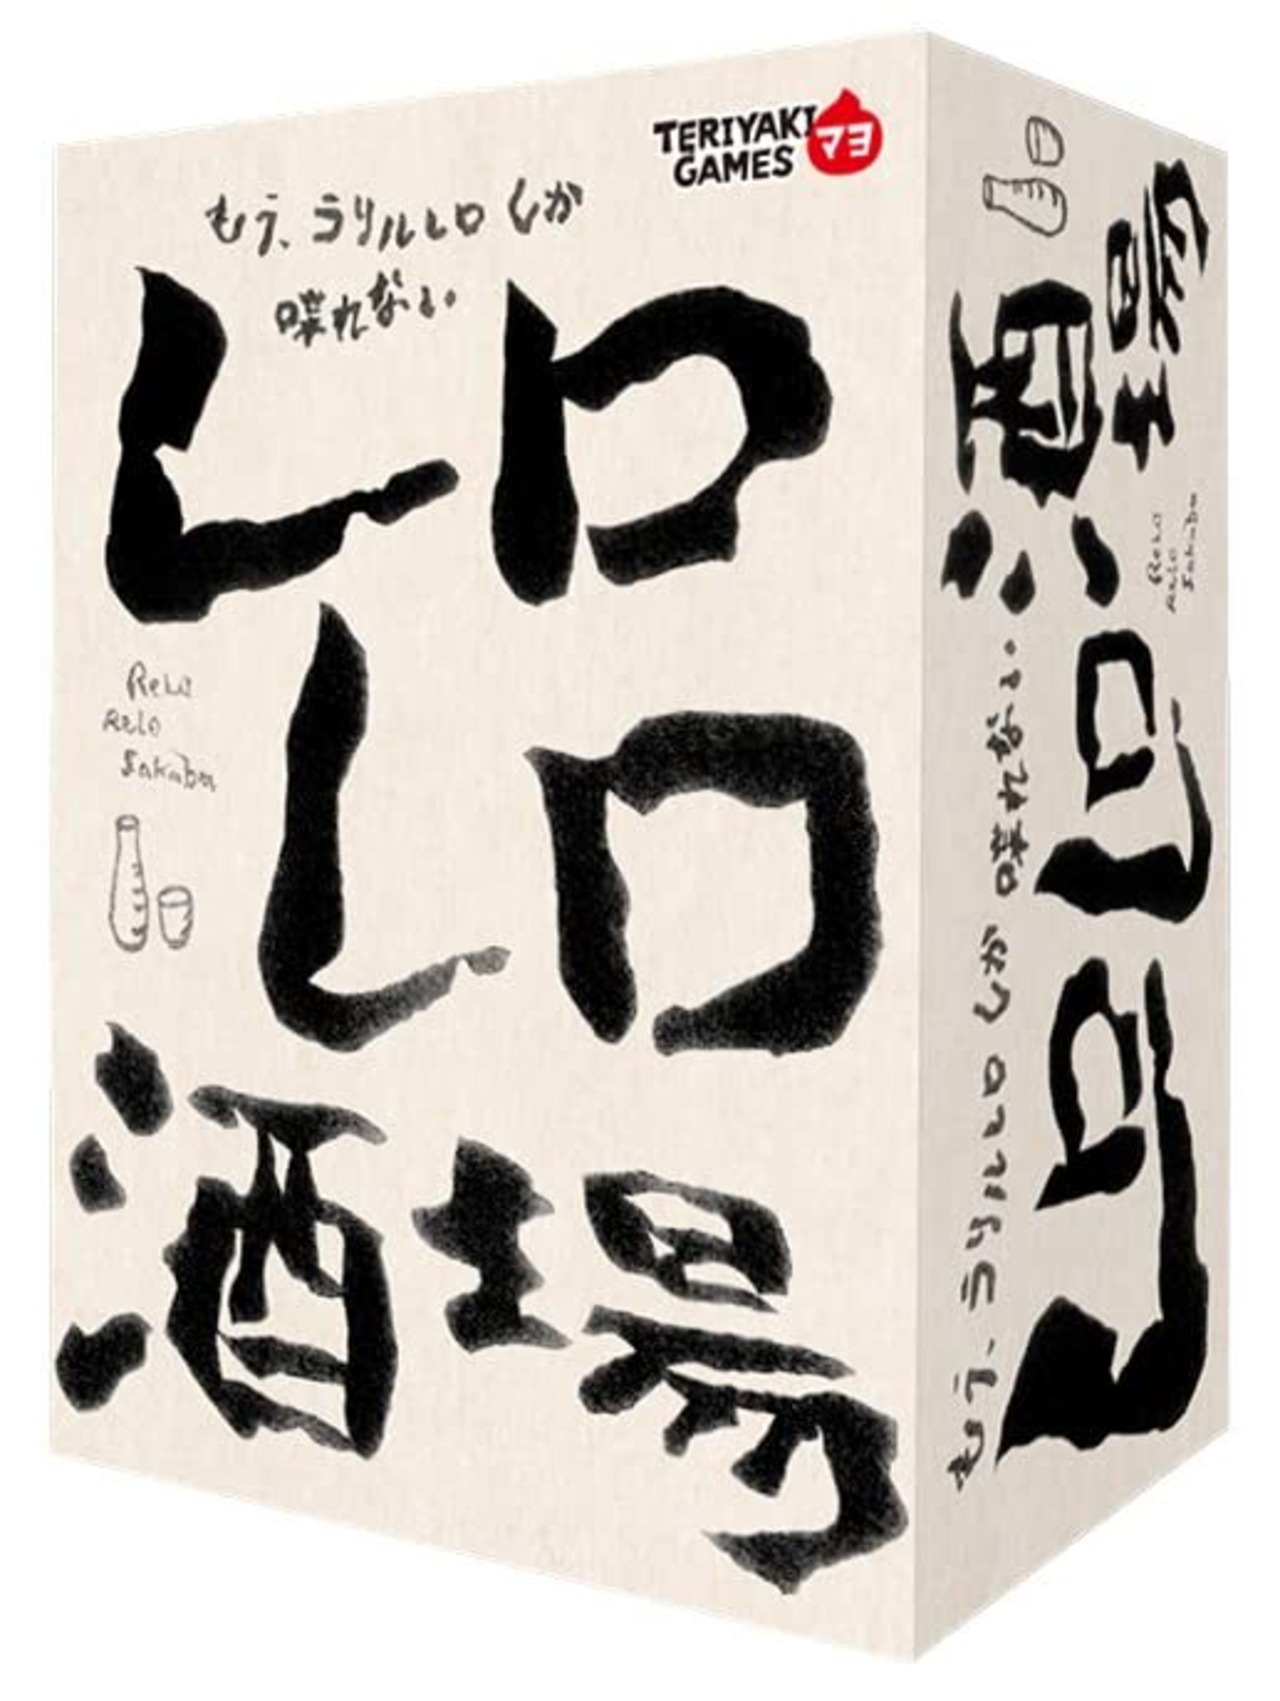 TERIYAKI
GAMES
マヨ
もう、ラリルレロしか
喋れない。
レロ
レロ
酒場
ReLo
ReLo
Sakaba
レロレロ酒場
ReLo
ReLo
Sakaba
もう、ラリルレロしか 喋れない。